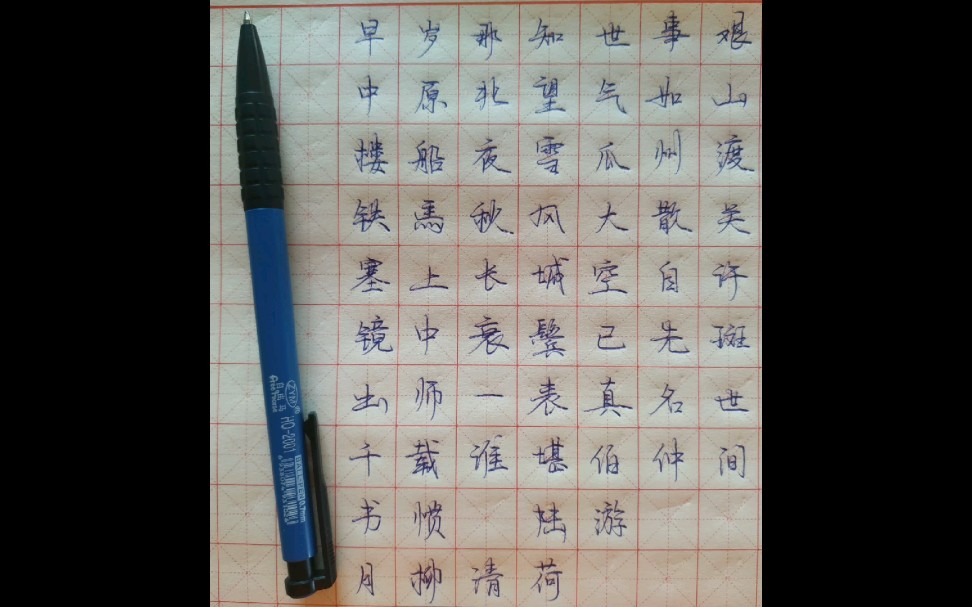 早岁那知世事艰
中原北望气如山
楼船夜雪瓜州渡
铁馬秋风大散关
塞上长城空自许
镜中衰鬓已先斑
出师一表真名世
千载谁堪伯仲间
书愤 陆游
月柳清荷
HO-2001
0.7mm